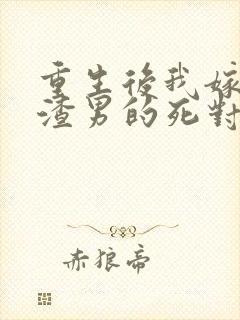 重生後我嫁
渣男的死對
赤狼帝